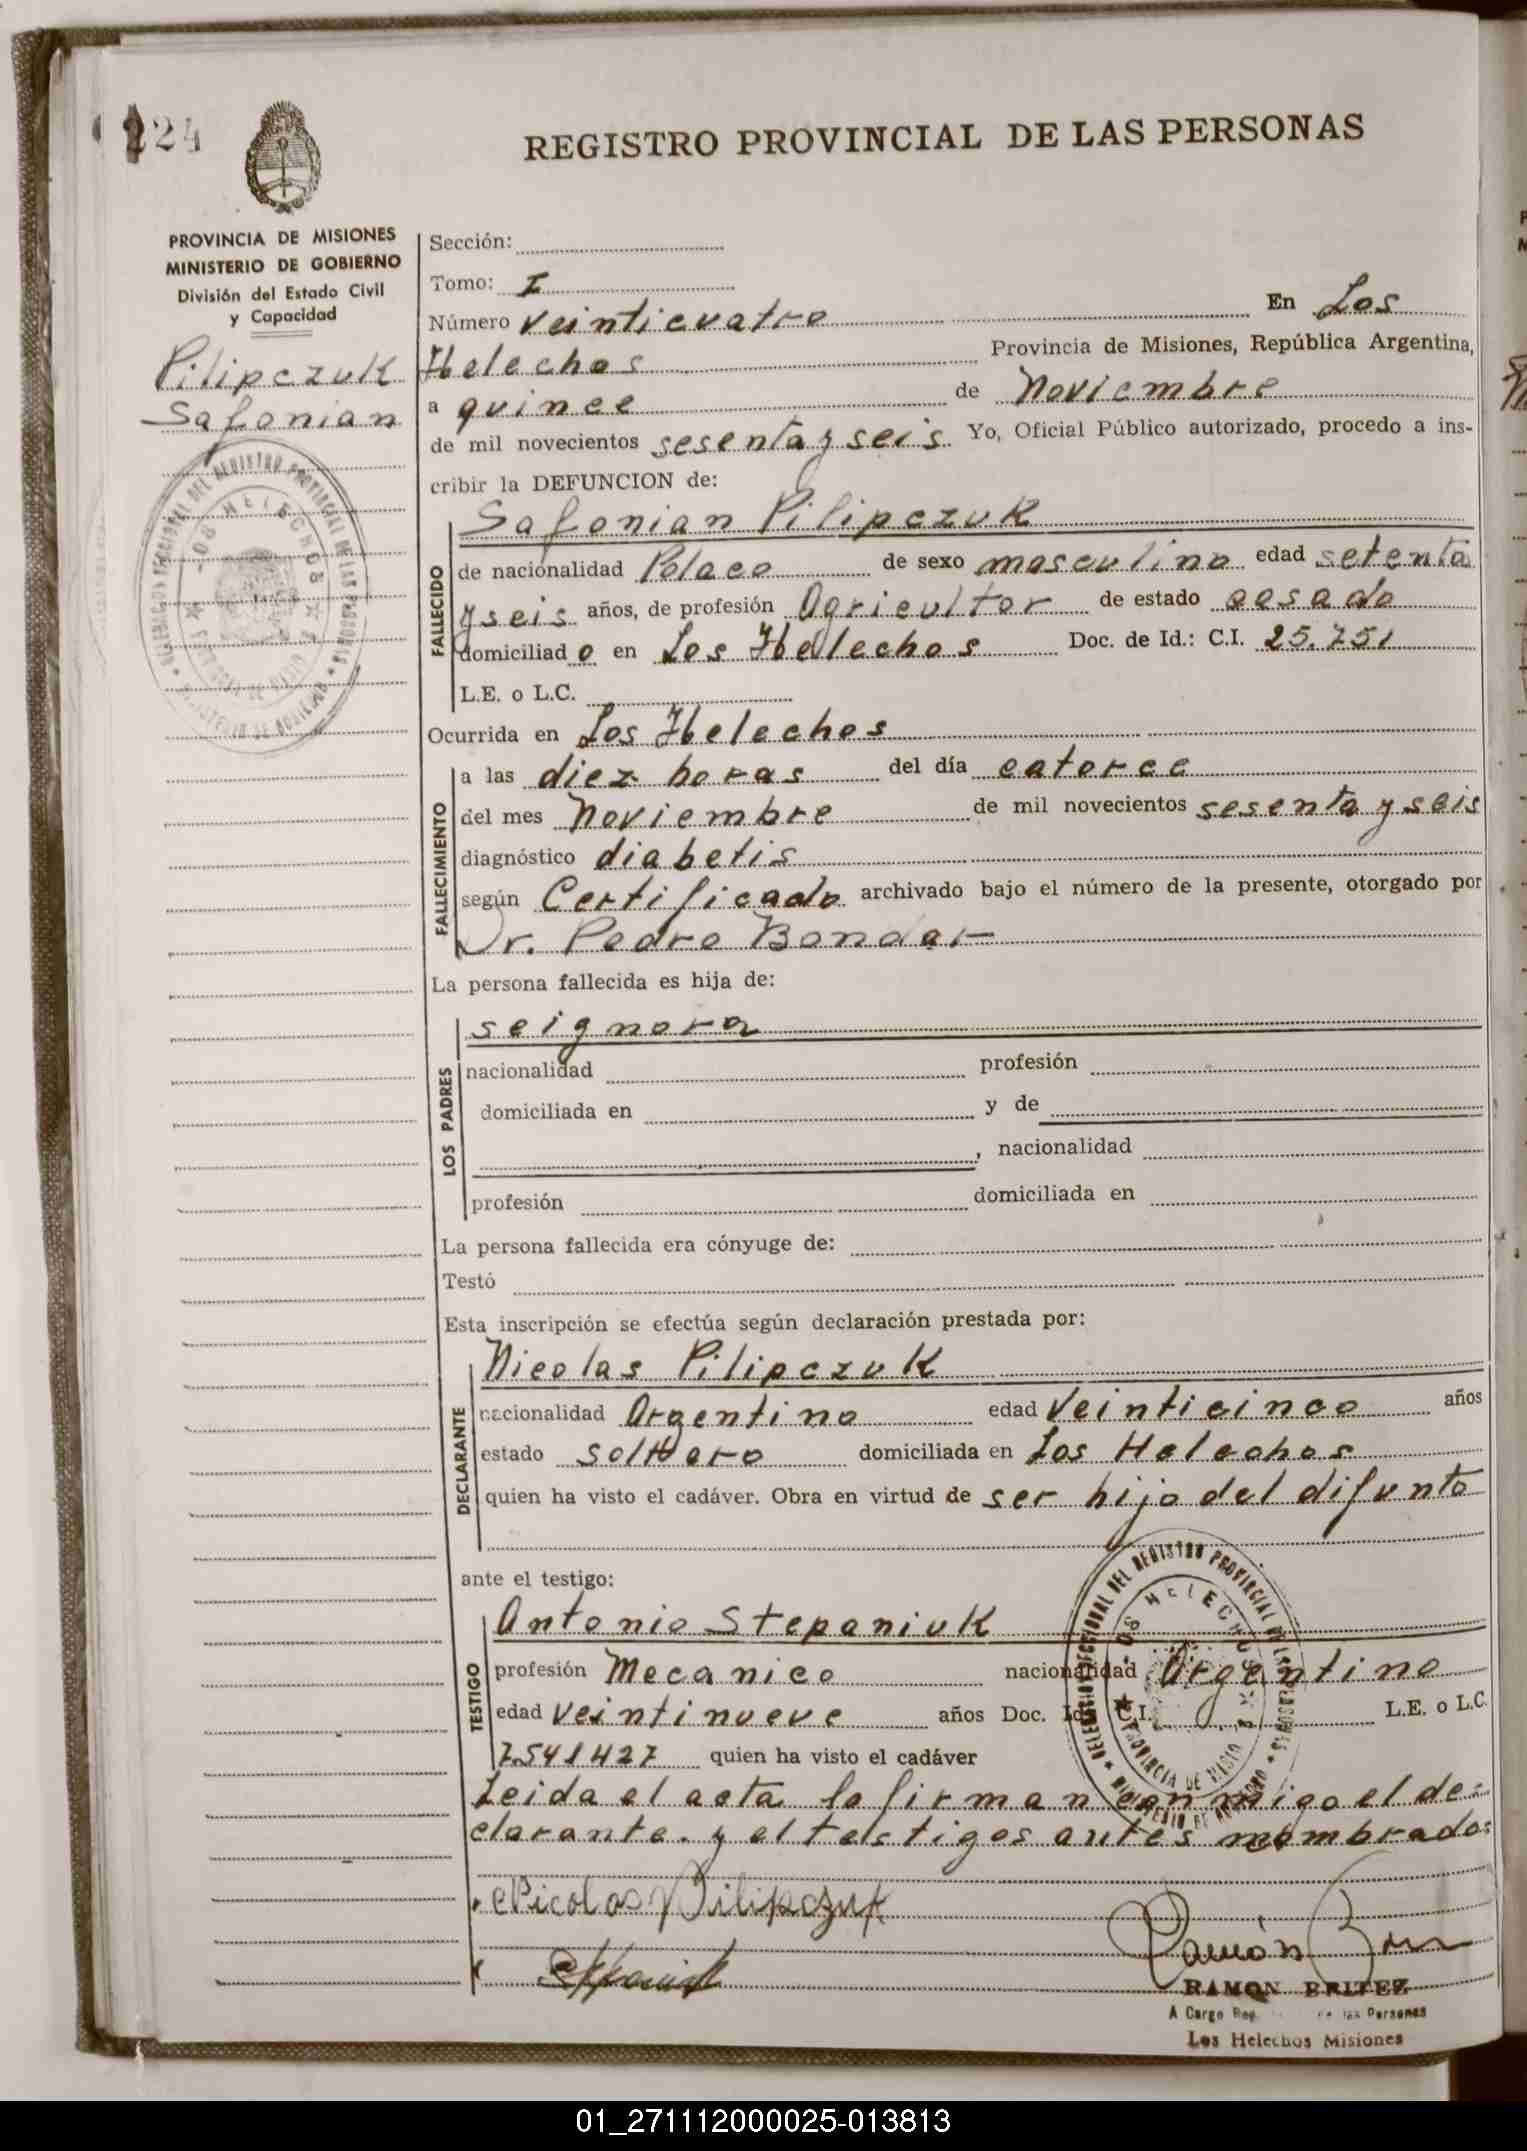 224
REGISTRO PROVINCIAL DE LAS PERSONAS
PROVINCIA DE MISIONES
MINISTERIO DE GOBIERNO
División del Estado Civil
y Capacidad
Pilipczuk
Safonian
Sección:
Tomo: I
Número veinticuatro En Los
Helechos Provincia de Misiones, República Argentina,
a quince de Noviembre
de mil novecientos sesenta y seis. Yo, Oficial Público autorizado, procedo a ins-
cribir la DEFUNCION de:
FALLECIDO
Safonian Pilipczuk
de nacionalidad Polaco de sexo masculino edad setenta
y seis años, de profesión Agricultor de estado casado
domiciliado en Los Helechos Doc. de Id.: C.I. 25.751
L.E. o L.C.
Ocurrida en Los Helechos
FALLECIMIENTO
a las diez horas del día catorce
del mes Noviembre de mil novecientos sesenta y seis
diagnóstico diabetis
según Certificado archivado bajo el número de la presente, otorgado por
Dr. Pedro Bondar
La persona fallecida es hija de:
LOS PADRES
seignora
nacionalidad profesión
domiciliada en y de
, nacionalidad
profesión domiciliada en
La persona fallecida era cónyuge de:
Testó
Esta inscripción se efectúa según declaración prestada por:
DECLARANTE
Nicolas Pilipczuk
nacionalidad Argentino edad veinticinco años
estado soltero domiciliada en Los Helechos
quien ha visto el cadáver. Obra en virtud de ser hijo del difunto
ante el testigo:
TESTIGO
Antonio Stepaniuk
profesión Mecanico nacionalidad Argentino
edad veintinueve años Doc. Id.: C.I. L.E. o L.C.
7.541427 quien ha visto el cadáver
Leida el acta la firman conmigo el de-
clarante. y el testigos antes mombrados
Nicolas Pilipczuk
Ramón
RAMON BRITEZ
A Cargo Reg. de las Personas
Los Helechos Misiones
01_271112000025-013813